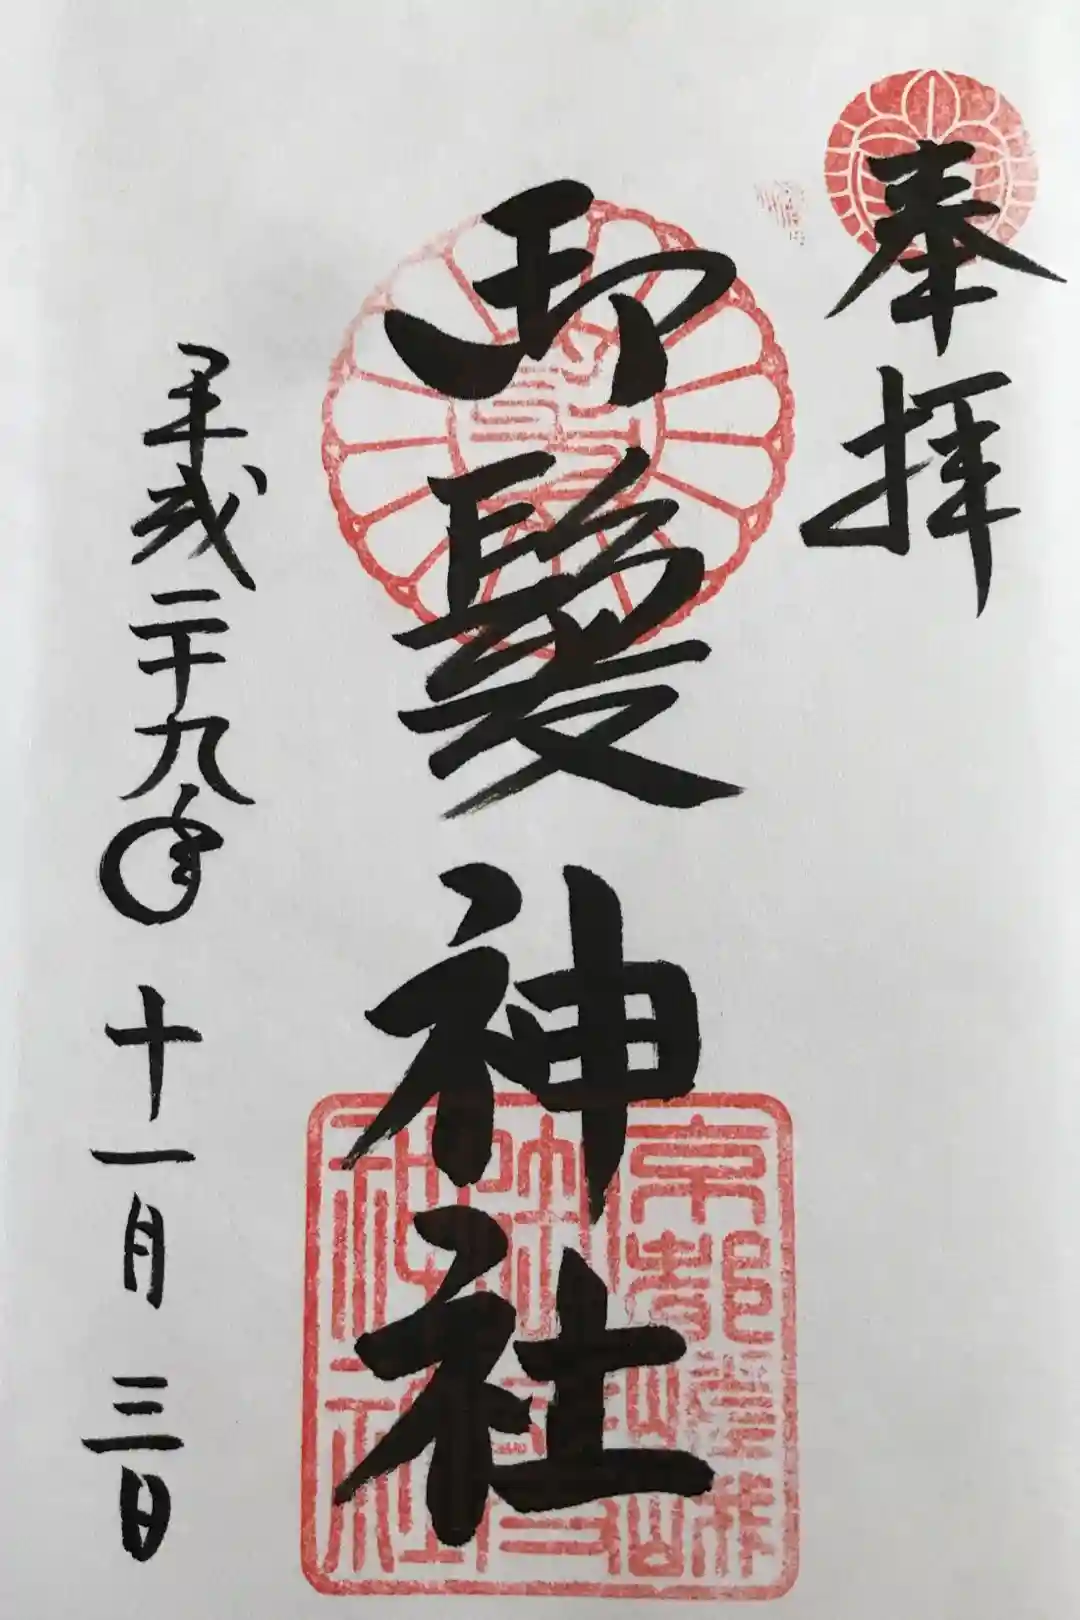 奉拝
御髪神社
平成二十九年十一月三日
京都嵯峨
御髪
神社